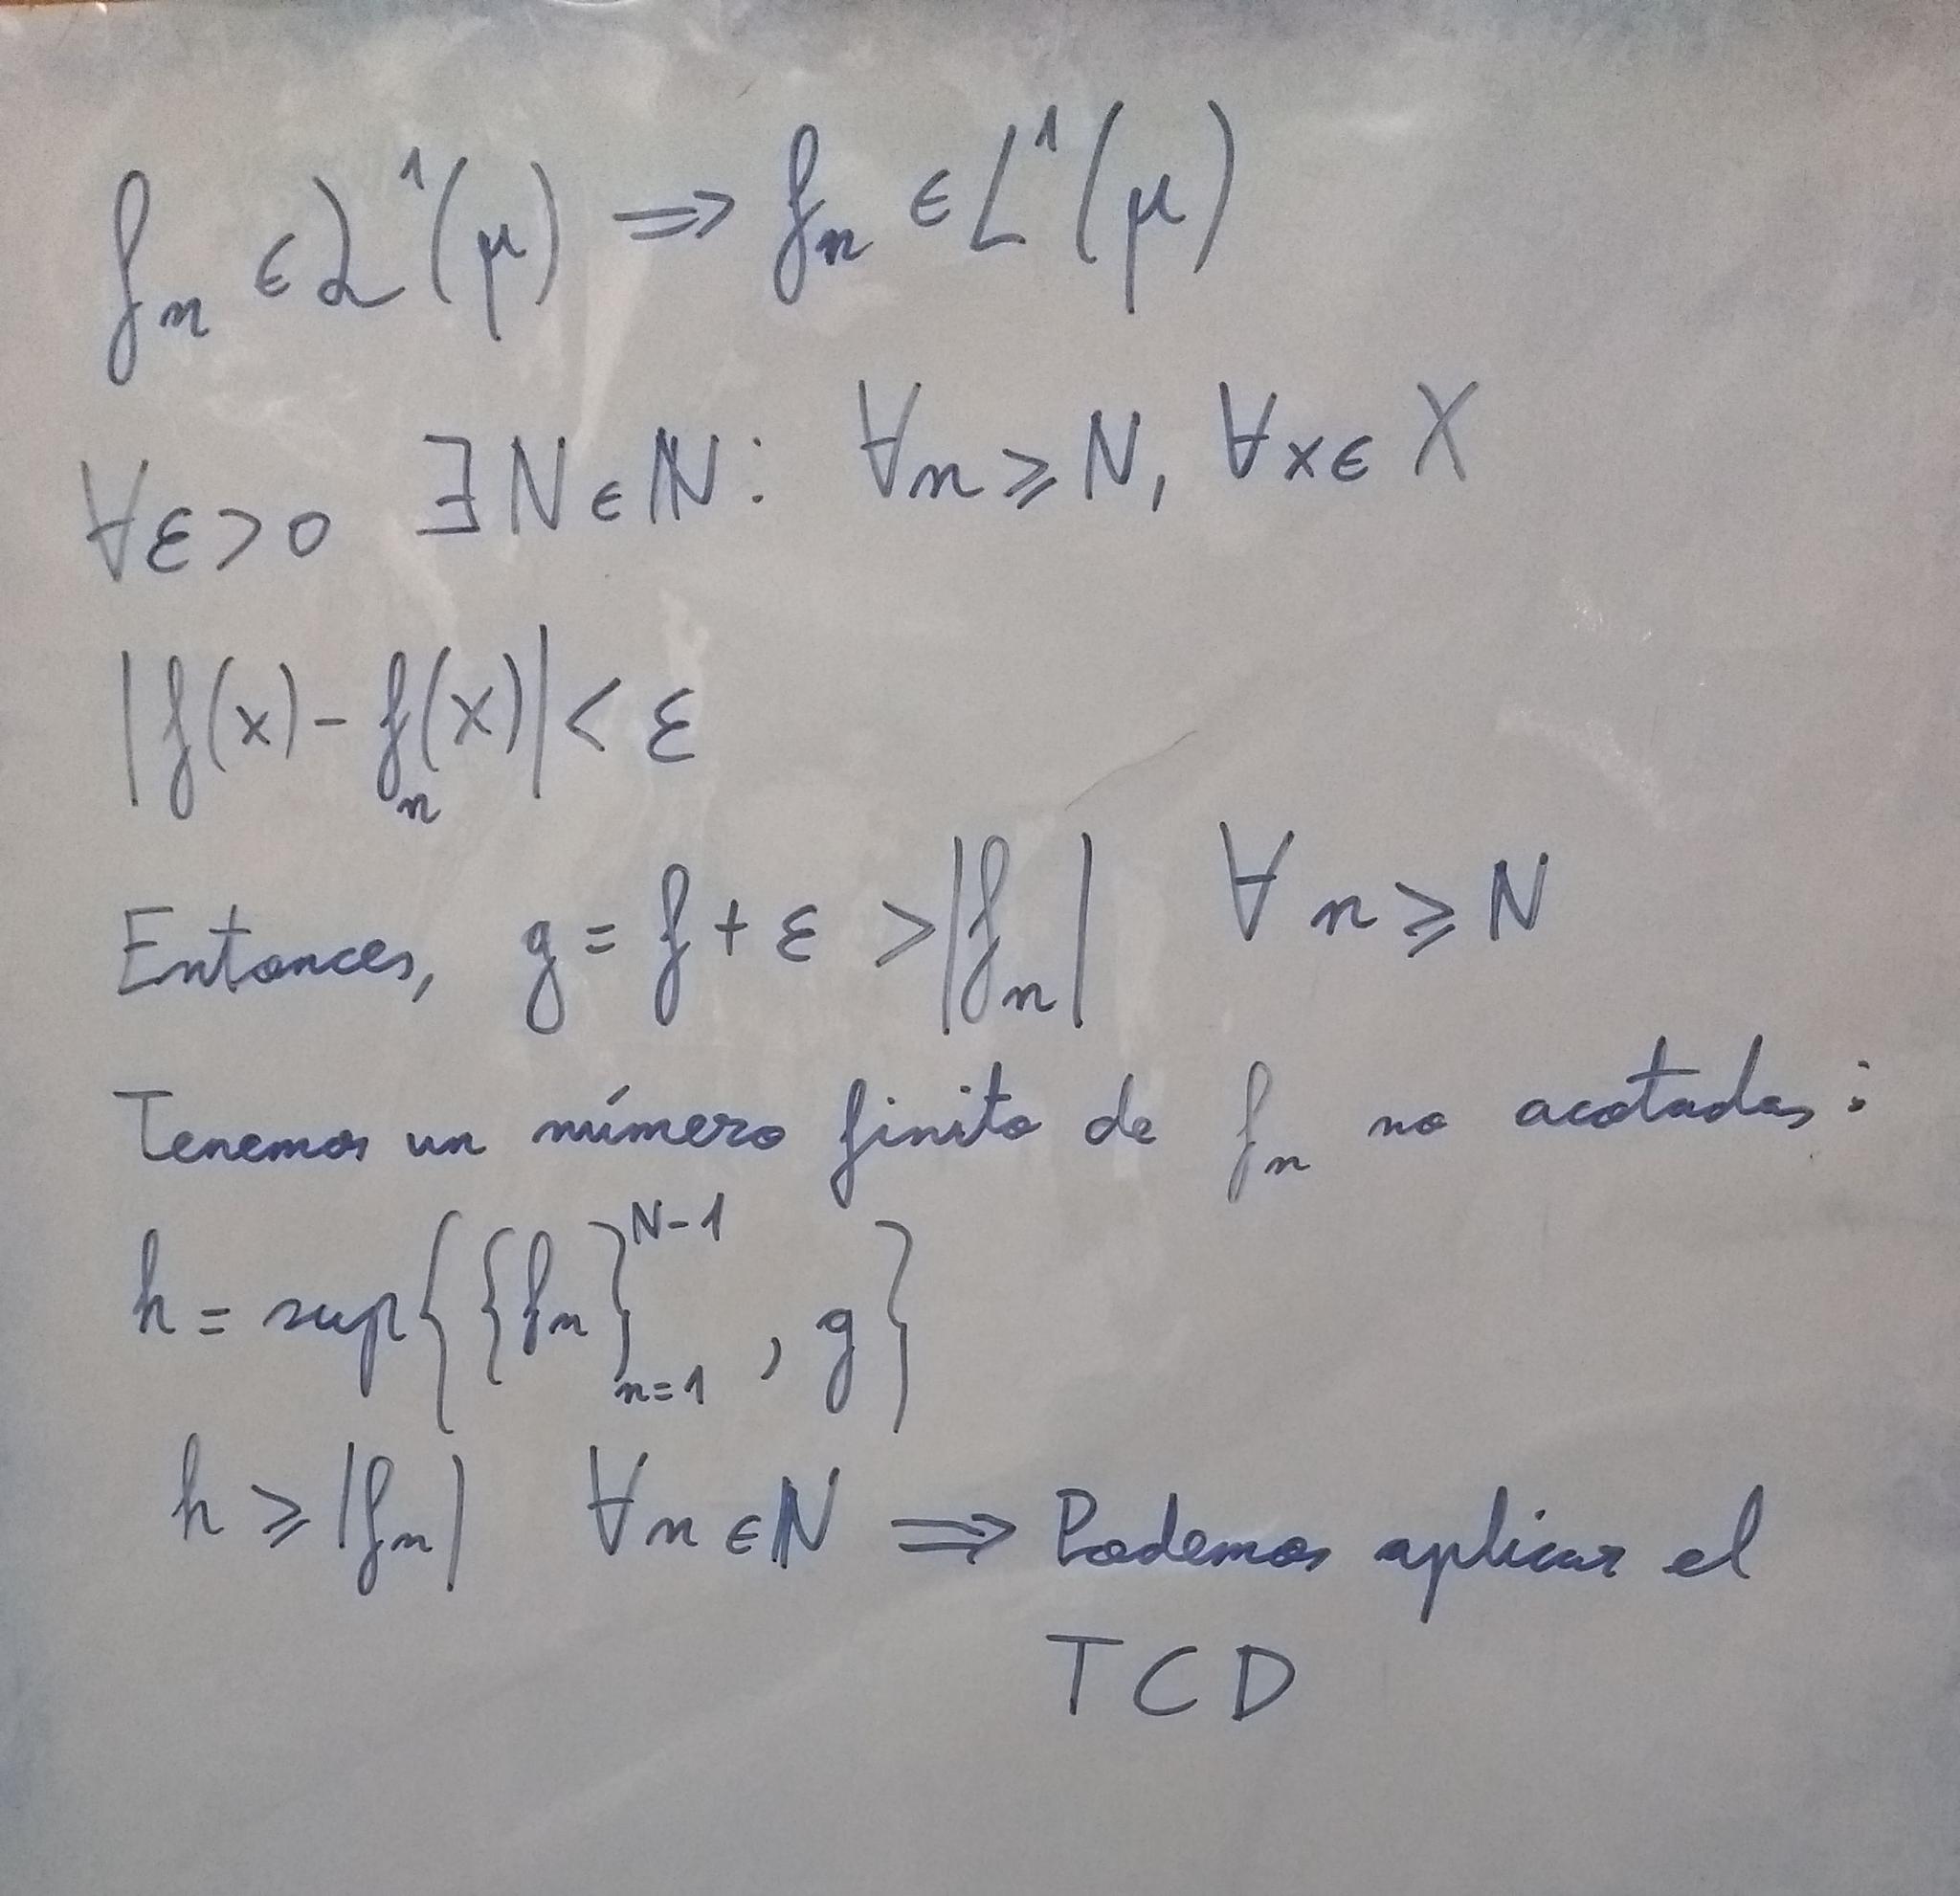 fₙ ∈ ℒ¹(μ) ⇒ fₙ ∈ L¹(μ)
∀ε>0 ∃N∈ℕ: ∀n⩾N, ∀x∈X
|f(x)-fₙ(x)|<ε
Entonces, g=f+ε>|fₙ| ∀n⩾N
Tenemos un número finito de fₙ no acotadas:
h=sup{{fₙ}_{n=1}^{N-1}, g}
h⩾|fₙ| ∀n∈ℕ ⇒ Podemos aplicar el
TCD